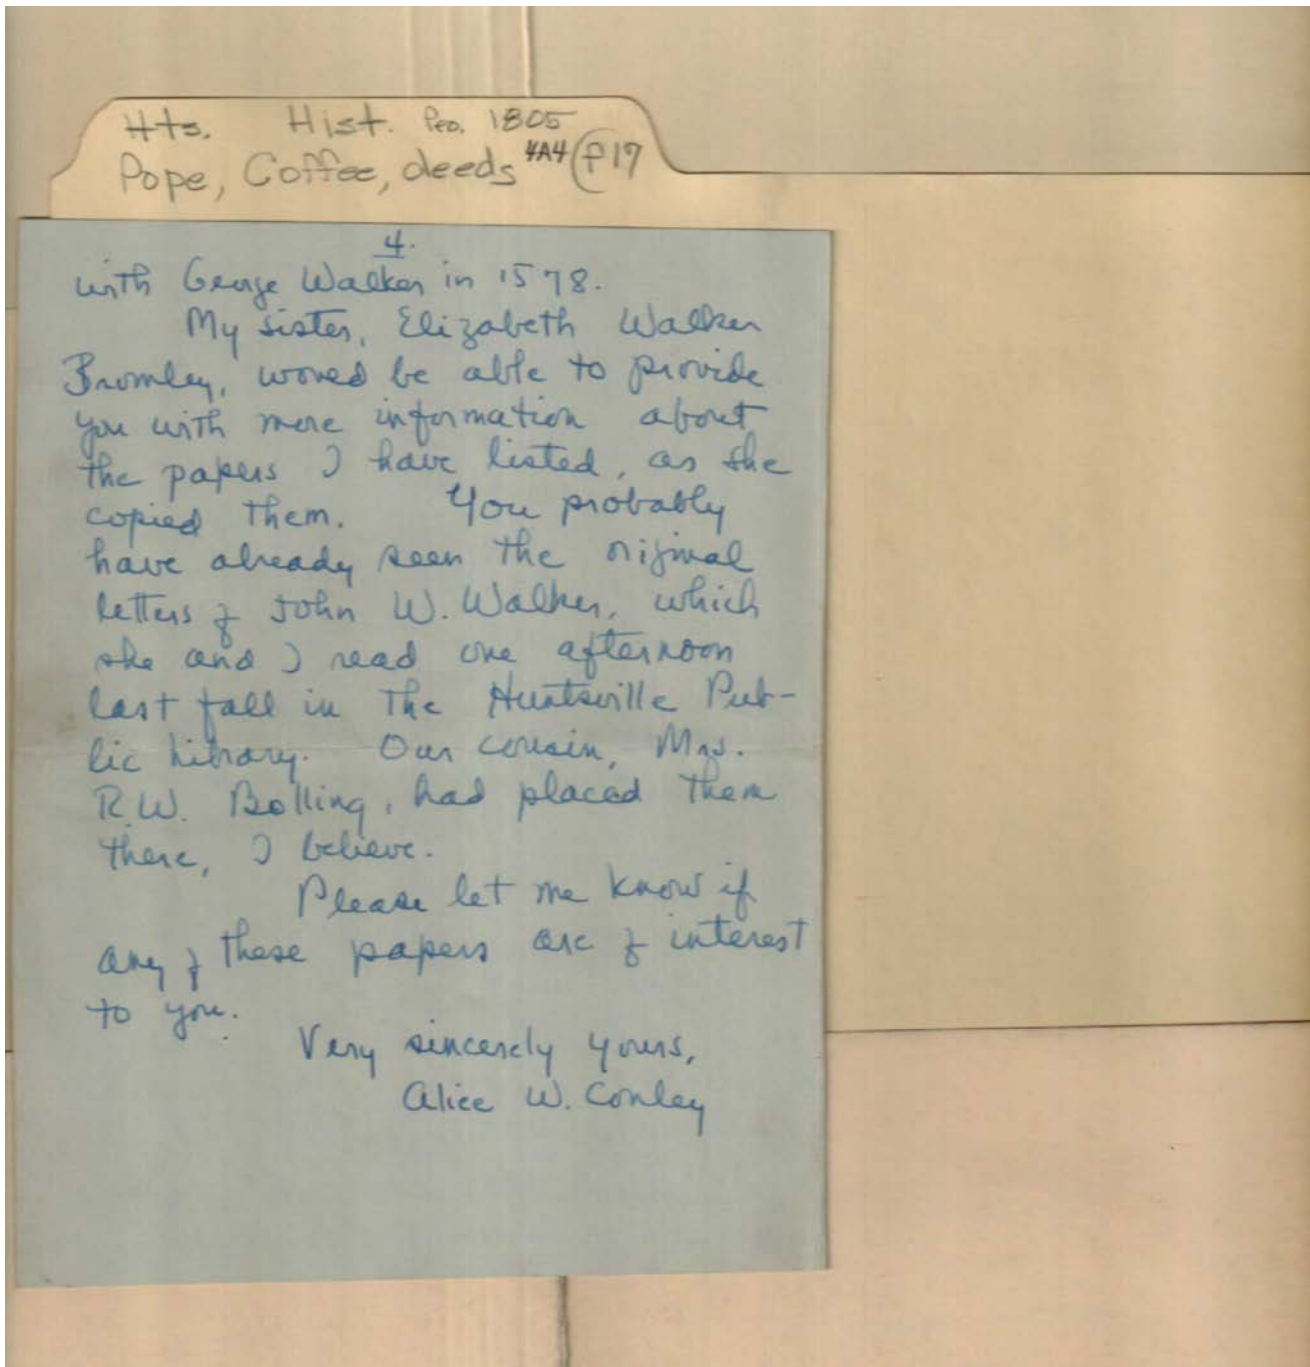 Hts. Hist. Peo. 1805
Pope, Coffee, deeds 4A4 P17
4.
with George Walker in 1578.
My sister, Elizabeth Walker
Bromley, would be able to provide
you with more information about
the papers I have listed, as she
copied them. You probably
have already seen the original
letters of John W. Walker, which
she and I read one afternoon
last fall in the Huntsville Pub-
lic Library. Our cousin, Mrs.
R.W. Bolling, had placed them
there, I believe.
Please let me know if
any of these papers are of interest
to you.
Very sincerely yours,
Alice W. Conley